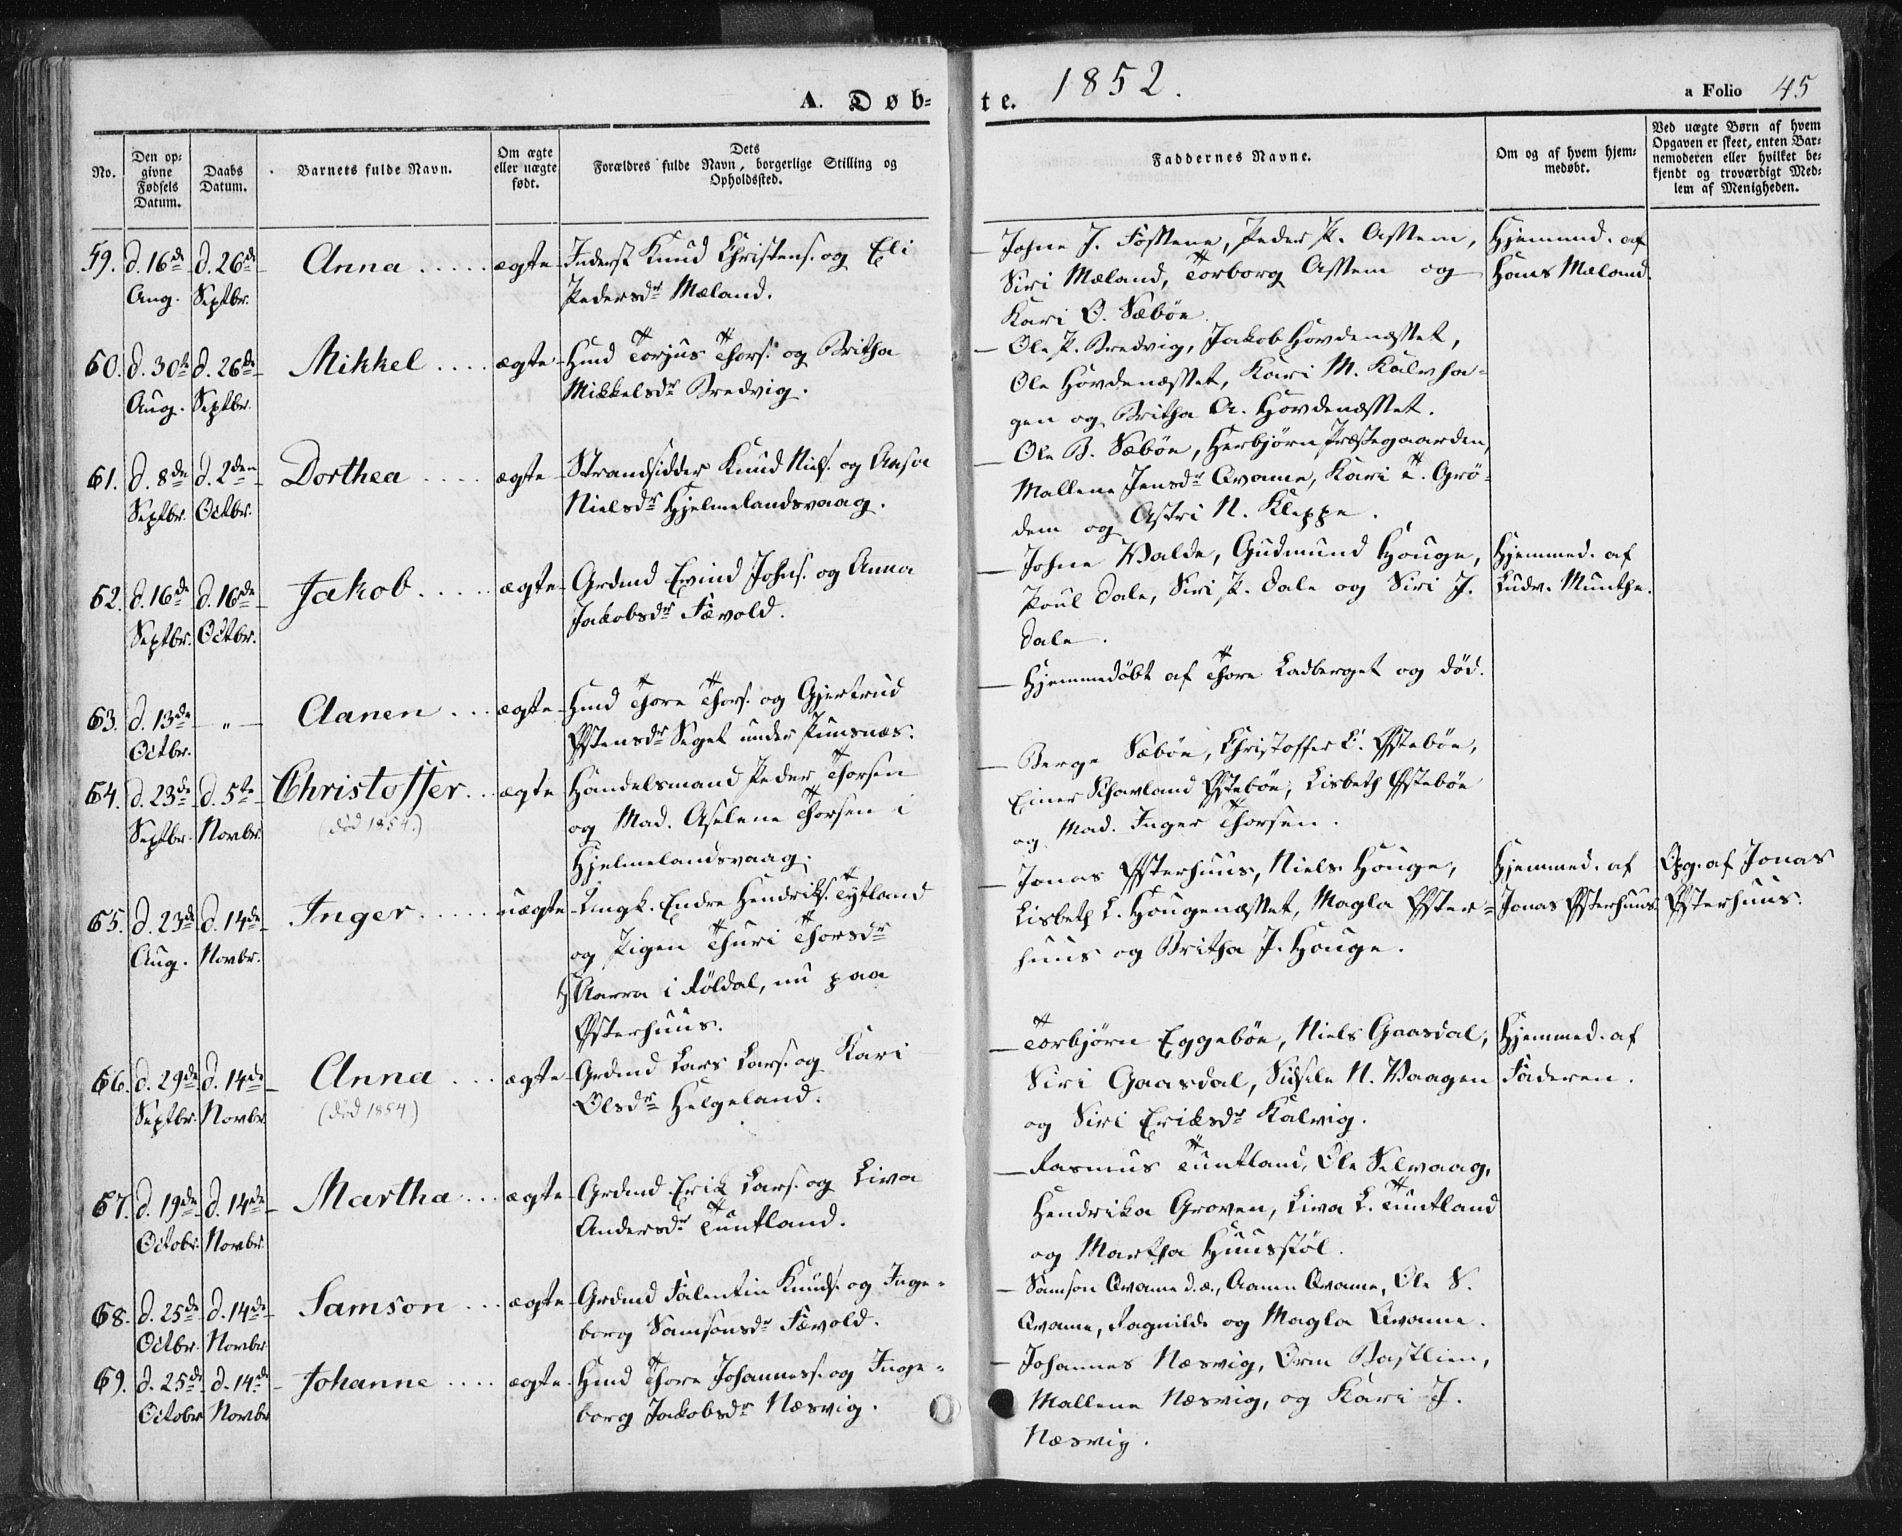 A. Døb-
te. 1852.
a Folio 45
No.
Den op-
givne
Fødsels
Datum.
Daabs
Datum.
Barnets fulde Navn.
Om ægte
eller uægte
født.
Dets
Forældres fulde Navn, borgerlige Stilling og
Opholdssted.
Faddernes Navne.
Om og af hvem hjem-
medøbt.
Ved uægte Børn af hvem
Opgaven er skeet, enten Bar-
nemoderen eller hvilket be-
kjendt og troværdigt Med-
lem af Menigheden.
59. d. 16de Aug. d. 26de Septbr. Anna . . . . . ægte Inderst Knud Christens. og Eli
Pedersdr Mæland.
Johne J. Fosstene, Peder P. Assem,
Siri Mæland, Torborg Assem og
Kari O. Sæbøe.
Hjemmed. af
Hans Mæland.
60. d. 30te Aug. d. 26de Septbr. Mikkel . . . . ægte Hmd Torjus Thors. og Britha
Mikkelsdr Bredvig.
Ole P. Bredvig, Jakob Hovdenæsset,
Ole Hovdenæsset, Kari M. Kalvha-
gen og Britha A. Hovdenæsset.
61. d. 8de Septbr. d. 2den Octbr. Dorthea . . . . ægte Strandsidder Knud Niels. og Ansa
Nielsdr Hjelmelandsvaag.
Ole B. Sæbøe, Herbjørn Præstegaarden,
Mallene Jensdr Qvame, Kari T. Grø-
dem og Astri N. Kleppe.
62. d. 16de Septbr. d. 16de Octbr. Jakob . . . . . ægte Grdmd Evind Johns. og Anna
Jakobsdr Fævold.
Johne Walde, Gudmund Houge,
Poul Dale, Siri P. Dale og Siri J.
Dale.
Hjemmed. af
Ludv. Munthe.
63. d. 13de Octbr. „ Aanen . . . ægte Hmd Thore Thors. og Gjertrud
Østensdr Seget under Pundsnæs.
Hjemmedøbt af Thore Ladberget og død.
64. d. 23de Septbr. d. 5te Novbr. Christoffer . . ægte Handelsmand Peder Thorsen
(død 1854.)
og Mad. Aselene Thorsen i
Hjelmelandsvaag.
Berge Sæbøe, Christoffer C. Østebøe,
Einer Skarland Østebøe, Lisbeth Østebøe
og Mad. Inger Thorsen.
65. d. 23de Aug. d. 14de Novbr. Inger . . . . . uægte Ungk. Endre Hendriks. Tytland
og Pigen Thuri Thorsdr
Haarra i Røldal, nu paa
Østerhuus.
Jonas Østerhuus, Niels Houge,
Lisbeth L. Hougenæsset, Magla Øster-
huus og Britha J. Houge.
Hjemmed. af
Jonas Østerhuus
Opg. af Jonas
Østerhuus.
66. d. 29de Septbr. d. 14de Novbr Anna . . . ægte Grdmd Lars Lars. og Kari
(død 1854)
Olsdr Helgeland.
Torbjørn Eggebøe, Niels Gaasdal,
Siri Gaasdal, Sidsele N. Vaagen
og Siri Eriksdr Kalvig.
Hjemmed. af
Faderen.
67. d. 19de Octobr. d. 14de Novbr. Martha . . . ægte Grdmd Erik Lars. og Liva
Andersdr Tuntland.
Rasmus Tuntland, Ole Selvaag,
Hendrika Groven, Liva L. Tuntland
og Martha Huusstøl.
68. d. 25de Octbr. d. 14de Novbr. Samson . . . ægte Grdmd Falentin Knuds. og Inge-
borg Samsonsdr Fævold.
Samson Qvame d.æ., Aanen Qvame, Ole S.
Qvame, Ragnilde og Magla Qvame.
69. d. 25de Octobr d. 14de Novbr Johanne . . . . ægte Hmd Thore Johanness. og Inge-
borg Jakobsdr Næsvig.
Johannes Næsvig, Orm Bastlien,
Mallene Næsvig, og Kari J.
Næsvig.